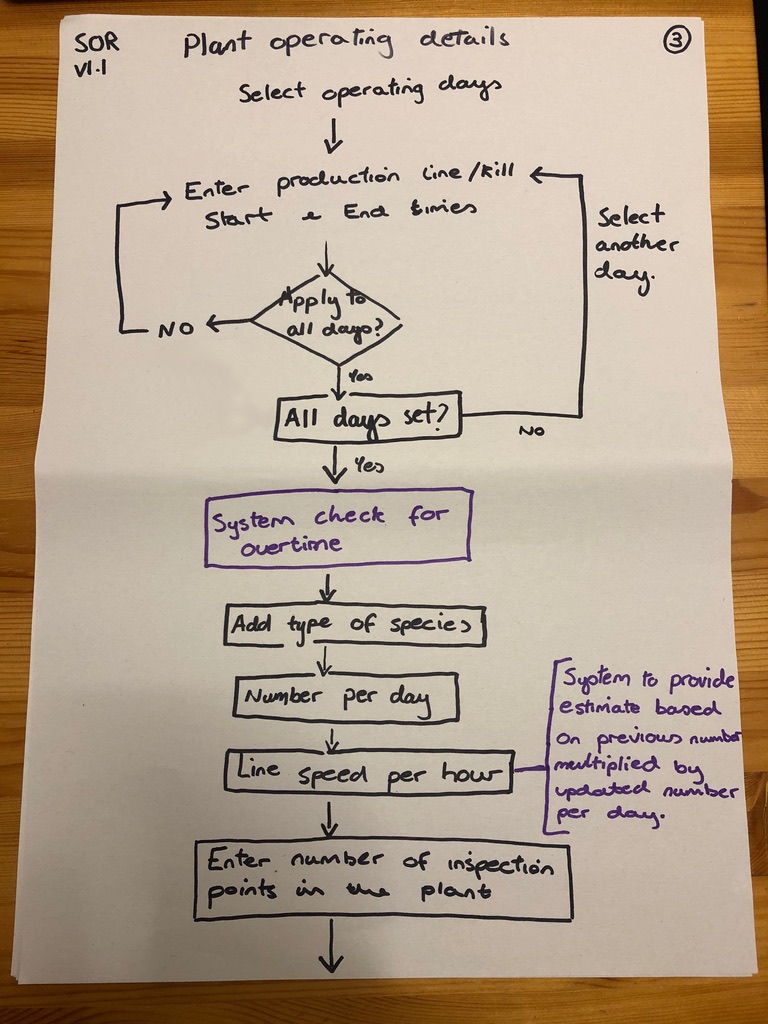 SOR
v1.1
Plant operating details
3
Select operating days
Enter production line/kill
Start & End times
Select
another
day.
Apply to
all days?
NO
Yes
All days set?
NO
Yes
System check for
overtime
Add type of species
Number per day
Line speed per hour
System to provide
estimate based
on previous number
multiplied by
updated number
per day.
Enter number of inspection
points in the plant